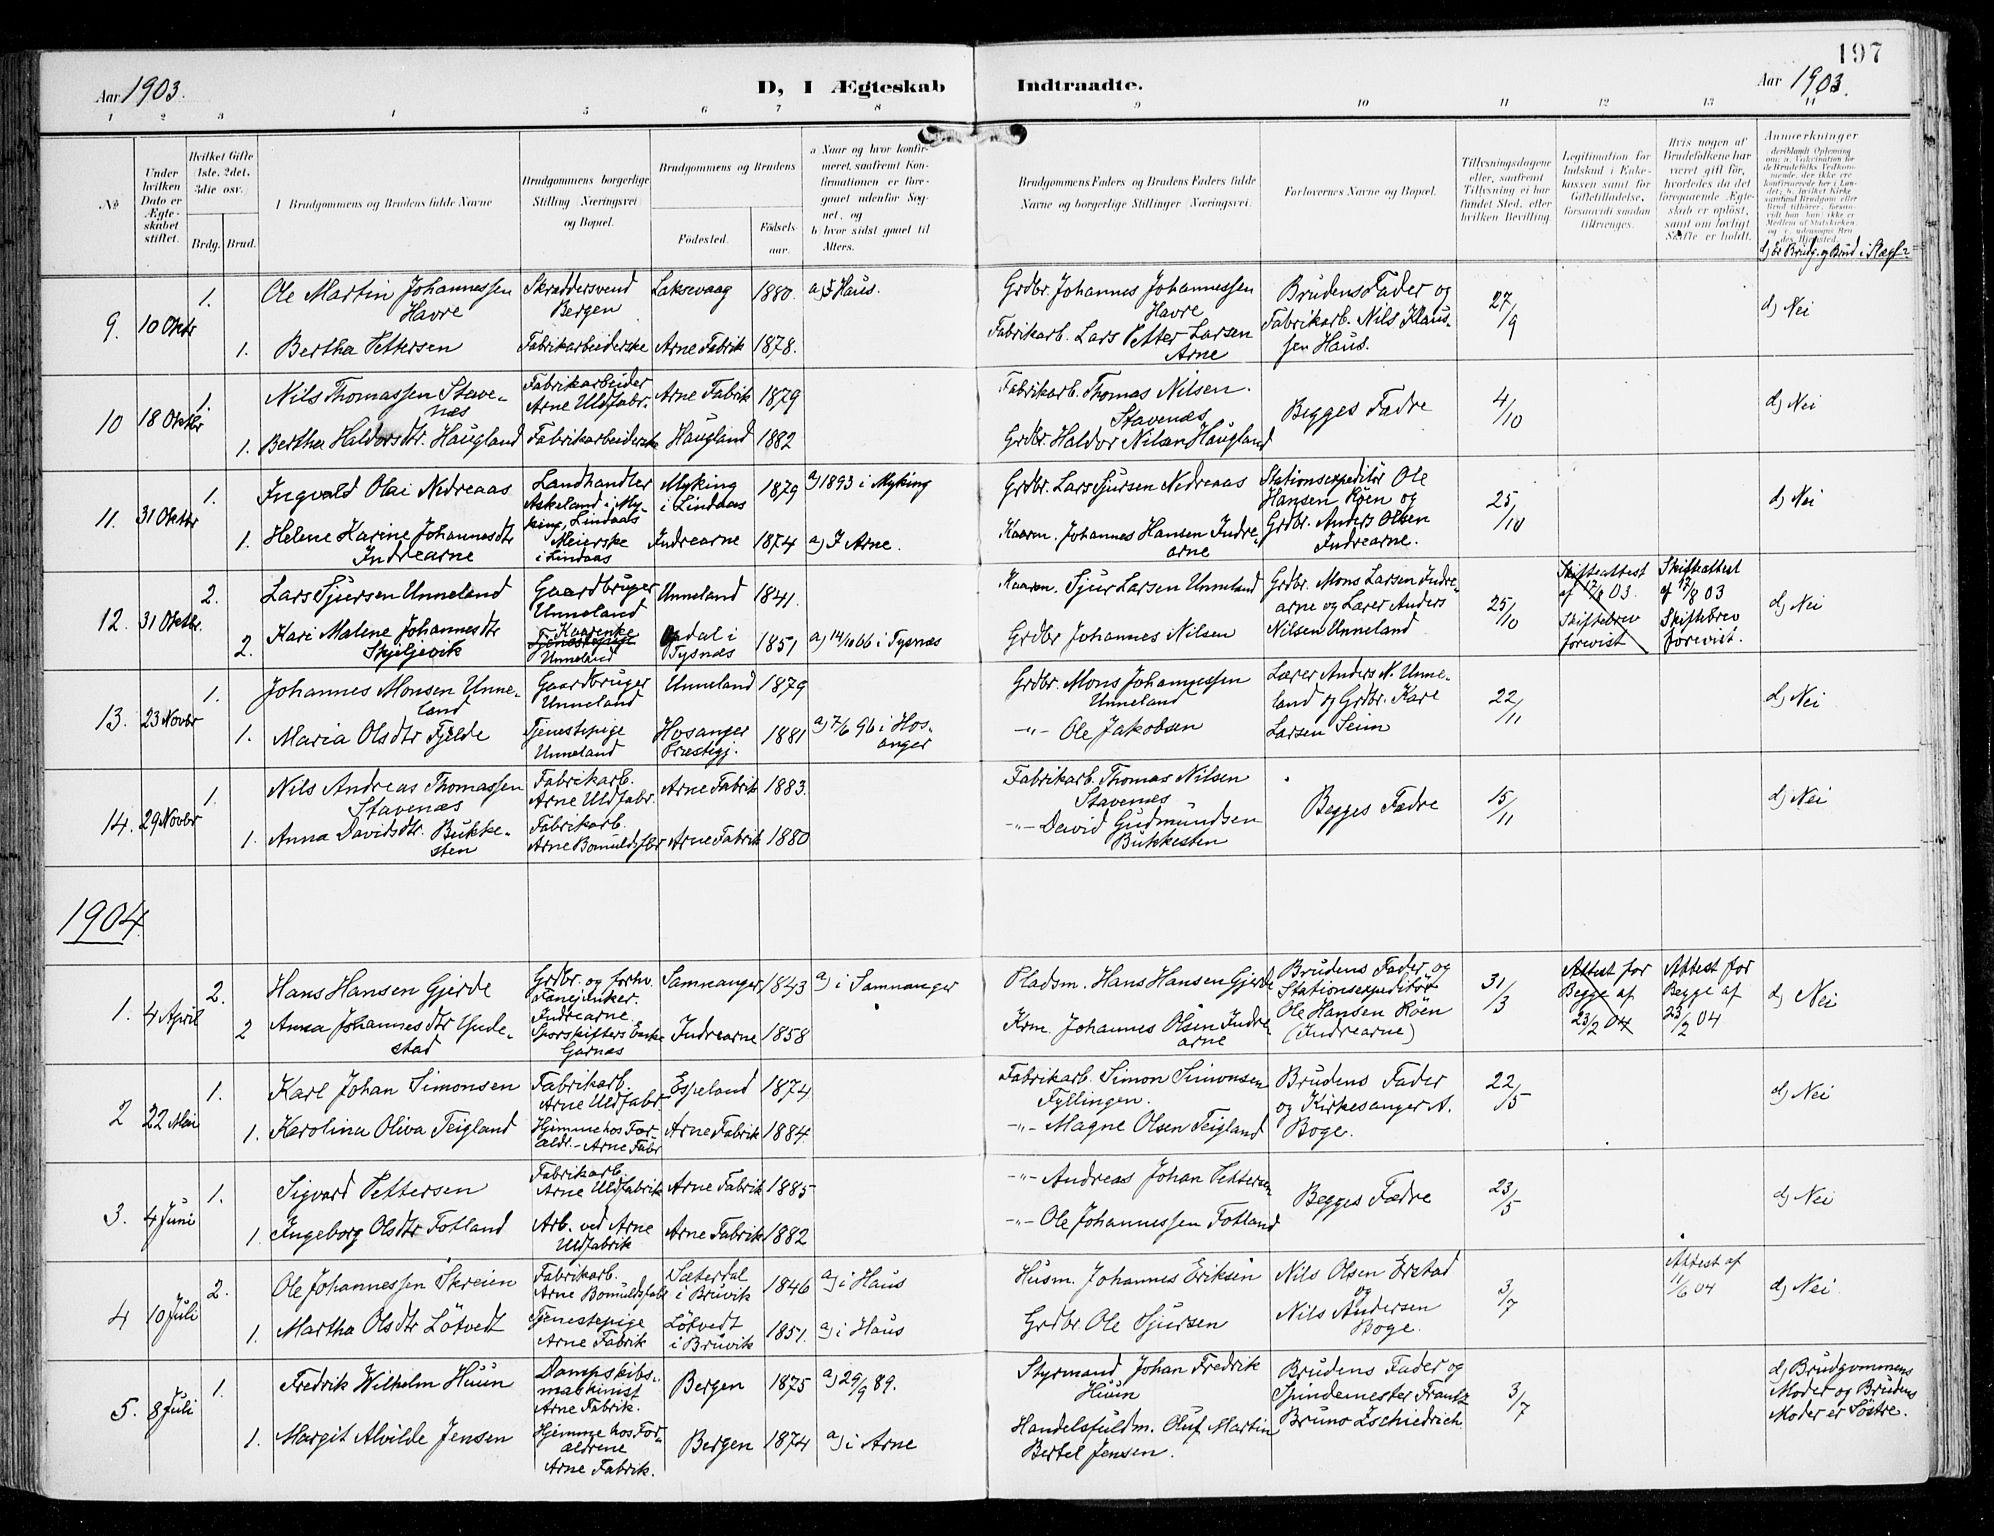 197
Aar 1903.
D, I Ægteskab Indtraadte.
Aar 1903.
1 2 3 4 5 6 7 8 9 10 11 12 13 14
No
Under hvilken Dato er Ægteskabet stiftet.
Hvilket Gifte 1ste, 2det, 3die osv.
Brdg. Brud.
Brudgommens og Brudens fulde Navne
Brudgommens borgerlige Stilling Næringsvei og Bopæl.
Brudgommens og Brudens
Fødested.
Fødselsaar.
a Naar og hvor konfirmeret, saafremt Konfirmationen er foregaaet udenfor Sognet, og
b hvor sidst gaaet til Alters.
Brudgommens Faders og Brudens Faders fulde Navne og borgerlige Stillinger Næringsvei.
Forlovernes Navne og Bopæl.
Tillysningsdagene eller, saafremt Tillysning ei har fundet Sted, efter hvilken Bevilling.
Legitimation for Indskud i Enkekassen samt for Giftetilladelse, forsaavidt saadan tiltrænges.
Hvis nogen af Brudefolkene har været gift før, hvorledes da det foregaaende Ægteskab er opløst, samt om lovligt Skifte er holdt.
Anmærkninger
d) Er Brudg. og Brud i Slægt?
9. 10 Oktbr 1. Ole Martin Johannessen Havre Skræddersvend Bergen Laksevaag 1880. a) I Haus. Grdbr. Johannes Johannessen Havre Brudens Fader og Fabrikarb. Nils Klaussen Haus. 27/9 d) Nei
1. Bertha Pettersen Fabrikarbeiderske Arne Fabrik 1878. Fabrikarb. Lars Petter Larsen Arne
10 18 Oktbr 1. Nils Thomassen Stavenæs Fabrikarbeider Arne Uldfabr. Arne Fabrik 1879 Fabrikarb. Thomas Nilsen Stavenæs Begges Fædre 4/10 d) Nei
1. Bertha Haldorsdtr. Haugland Fabrikarbeiderske Haugland 1882 Grdbr. Haldor Nilsen Haugland
11. 31 Oktbr 1. Ingvald Olai Nedreaas Landhandler Askeland i Myking, Lindaas Myking i Lindaas 1879 a) 1893 i Myking Grdbr. Lars Sjursen Nedreaas Stationsexpeditör Ole Hansen Röen og Grdbr. Anders Olsen Indrearne. 25/10 d) Nei
1. Helene Karine Johannesdtr Indrearne Meierske i Lindaas Indrearne 1874 a) I Arne. Kaarm. Johannes Hansen Indrearne
12. 31 Oktbr. 2. Lars Sjursen Unneland Gaardbruger Unneland Unneland 1841. Kaarm. Sjur Larsen Unneland Grdbr. Mons Larsen Indrearne og Lærer Anders Nilsen Unneland 25/10 Skifteattest af 17/8 03. Skiftebrev forevist Skifteattest af 17/8 03 Skiftebrev forevist. d) Nei
2. Kari Malene Johannesdtr Skjeljevik Kaarenke Tjenestepige Unneland Opdal i Tysnæs 1851 a) 14/10 66 i Tysnæs Grdbr Johannes Nilsen
13. 23 Novbr 1. Johannes Monsen Unneland Gaardbruger Unneland Unneland 1879 Grdbr. Mons Johannessen Unneland Lærer Anders N. Unneland og Grdbr. Kare Larsen Seim 22/11 d) Nei
1. Maria Olsdtr Fjelde Tjenestepige Unneland Hosanger Præstegj. 1881 a) 7/6 96 i Hosanger -"- Ole Jakobsen
14. 29 Novbr 1. Nils Andreas Thomassen Stavenæs Fabrikarb. Arne Uldfabr. Arne Fabrik 1883. Fabrikarb. Thomas Nilsen Stavenæs Begges Fædre 15/11 d) Nei
1. Anna Davidsdtr. Bukkesten Fabrikarb. Arne Bomuldsfbr Arne Fabrik 1880 -"- David Gudmundsen Bukkesten
1904.
1. 4 April 2. Hans Hansen Gjerde Grdbr. og forhv. Indrearne. Samnanger 1843 a) i Samnanger Pladsm. Hans Hansen Gjerde Brudens Fader og Stationsexpeditör Ole Hansen Röen (Indrearne) 31/3 Attest for Begge af 23/2 04 Attest for Begge af 23/2 04 d) Nei
2 Anna Johannesdtr Garnæs Indrearne 1858 Krm. Johannes Olsen Indrearne
2 22 Mai 1. Karl Johan Simonsen Fabrikarb. Arne Uldfabr. Espeland 1874 Fabrikarb. Simon Simonsen Fyllingen. Brudens Fader og Kirkesanger A. Boge. 22/5 d) Nei
1. Karolina Oliva Teigland Hjemme hos Forældr. - Arne Fabr Arne Fabrik 1884 -"- Magne Olsen Teigland
3. 4 Juni 1. Sigvard Pettersen Fabrikarb. Arne Uldfabrik Arne Fabrik 1885 -"- Andreas Johan Pettersen Begges Fædre 23/5 d) Nei
1. Ingeborg Olsdtr Fotland Arb. ved Arne Uldfabrik Arne Fabrik 1882 -"- Ole Johannessen Fotland
4 10 Juli 2. Ole Johannessen Skreien Fabrikarb. Arne Bomuldsfabr Sæterdal i Bruvik 1846 a) i Haus Husm. Johannes Eriksen Nils Olsen Erstad og Nils Andersen Boge. 3/7 Attest af 11/6 04 d) Nei.
1. Martha Olsdtr Lötvedt Tjenestepige Arne Fabrik Lötvedt i Bruvik 1851. a) i Haus Grdbr. Ole Sjursen
5. 8 Juli 1. Fredrik Wilhelm Huun Dampskibsmaskinist Arne Fabrik. Bergen 1875 a) 29/9 89. Styrmand Johan Fredrik Huun Brudens Fader og Spindemester Frantz Bruno Zschiedrich 3/7 d) Brudgommens Moder og Brudens Moder er Söstre.
1. Margit Alvilde Jensen Hjemme hos Forældrene Arne Fabrik. Bergen 1874 a) i Arne Handelsfuldm. Oluf Martin Bertel Jensen.